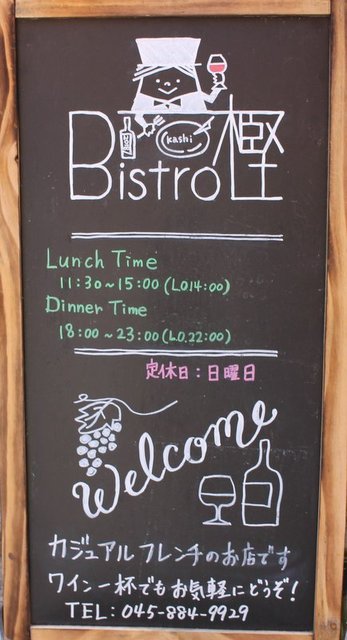 kashi
Bistro樫
Lunch Time
11:30~15:00(L.O14:00)
Dinner Time
18:00~23:00(L.O.22:00)
定休日:日曜日
Welcome
カジュアルフレンチのお店です
ワイン一杯でもお気軽にどうぞ!
TEL:045-884-9929